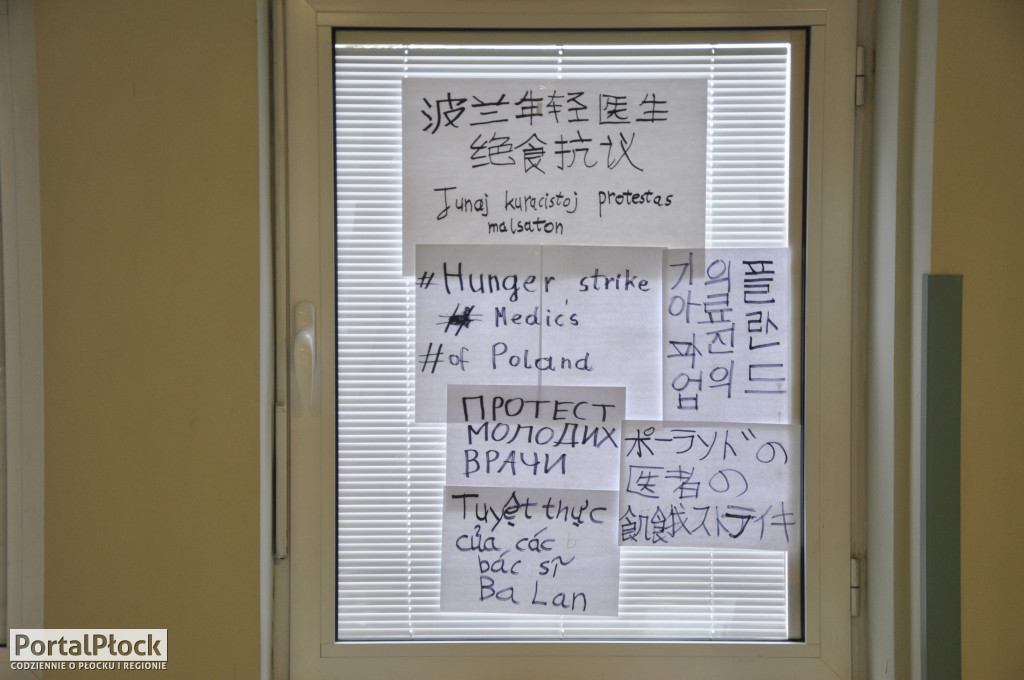 波兰年轻医生
绝食抗议
Junaj kuracistoj protestas
malsaton
#Hunger strike
# Medic's
#of Poland
플란드
의료진의
기아파업
ПРОТЕСТ
МОЛОДИХ
ВРАЧИ
ポーランドの
医者の
飢餓ストライキ
Tuyệt thực
của các
bác sĩ
Ba Lan
PortalPłock
CODZIENNIE O PŁOCKU I REGIONIE